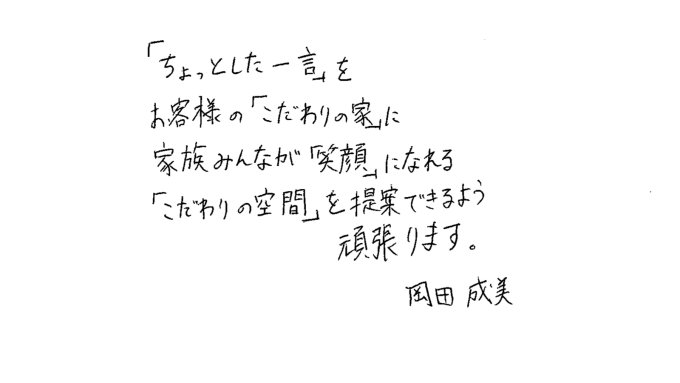 「ちょっとした一言」を
お客様の「こだわりの家」に
家族みんなが「笑顔」になれる
「こだわりの空間」を提案できるよう
頑張ります。
岡田 成美